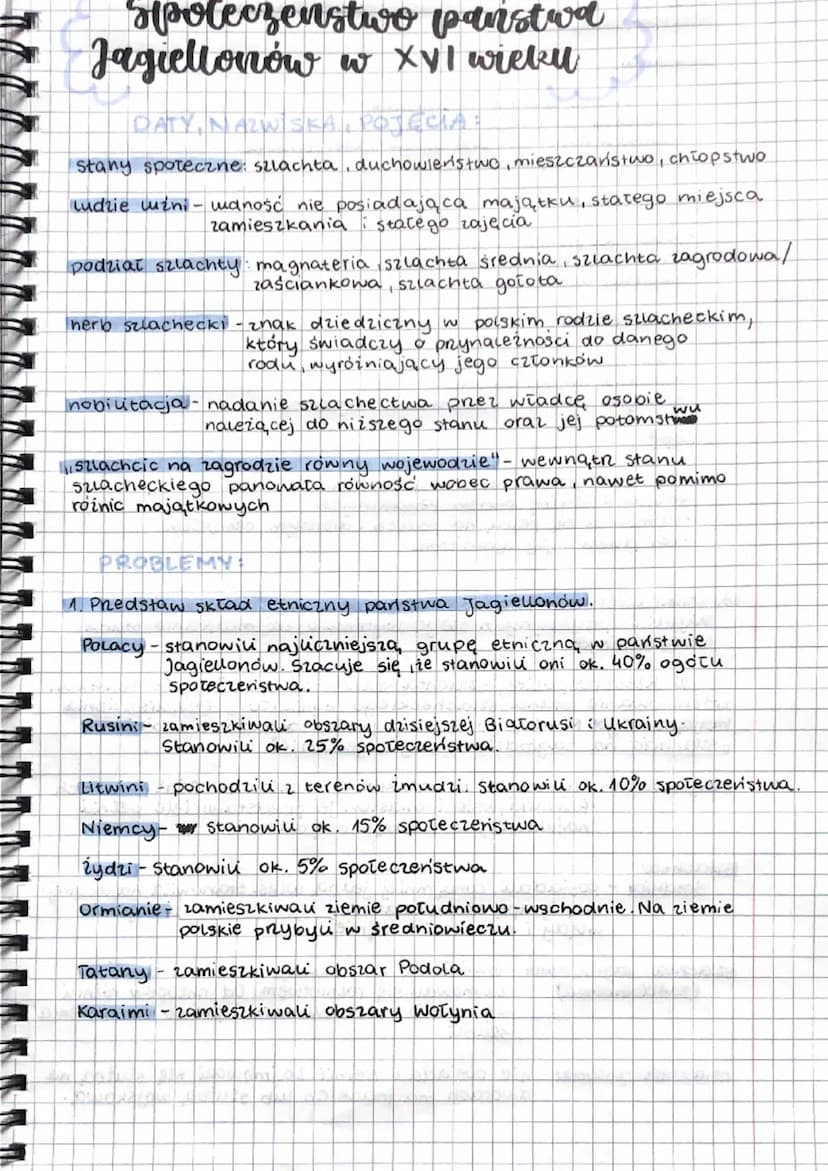 Społeczeństwo państwa
Jagiellonów w XVI wieku
DATY, NAZWISKA, POJĘCIA:
stany społeczne: szlachta, duchowieństwo, mieszczaństwo, chłopstwo
ludzie luźni - ludność nie posiadająca majątku, stałego miejsca
zamieszkania i stałego zajęcia
podział szlachty: magnateria, szlachta średnia, szlachta zagrodowa/
zaściankowa, szlachta gołota
herb szlachecki - znak dziedziczny w polskim rodzie szlacheckim,
który świadczy o przynależności do danego
rodu, wyróżniający jego członków
nobilitacja - nadanie szlachectwa przez władcę osobie
należącej do niższego stanu oraz jej potomstwu
„szlachcic na zagrodzie równy wojewodzie" - wewnątrz stanu
szlacheckiego panowała równość wobec prawa, nawet pomimo
różnic majątkowych
PROBLEMY:
1. Przedstaw skład etniczny państwa Jagiellonów.
Polacy - stanowili najliczniejszą grupę etniczną w państwie
Jagiellonów. Szacuje się, że stanowili oni ok. 40% ogółu
społeczeństwa.
Rusini - zamieszkiwali obszary dzisiejszej Białorusi i Ukrainy.
Stanowili ok. 25% społeczeństwa.
Litwini - pochodzili z terenów Żmudzi. Stanowili ok. 10% społeczeństwa.
Niemcy - stanowili ok. 15% społeczeństwa
Żydzi - Stanowili ok. 5% społeczeństwa
Ormianie - zamieszkiwali ziemie południowo-wschodnie. Na ziemie
polskie przybyli w średniowieczu.
Tatarzy - zamieszkiwali obszar Podola
Karaimi - zamieszkiwali obszary Wołynia